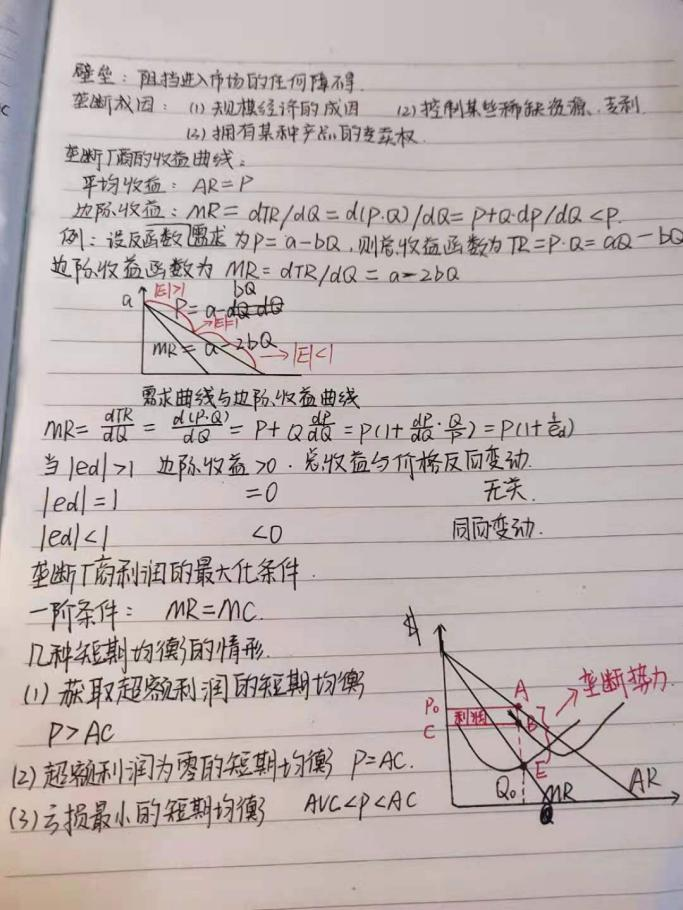 壁垒：阻挡进入市场的任何障碍.
垄断成因：(1) 规模经济的成因 (2) 控制某些稀缺资源、专利
(3) 拥有某种产品的变卖权.
垄断厂商的收益曲线：
平均收益：AR=P
边际收益：MR=dTR/dQ=d(P·Q)/dQ=P+Q·dp/dQ<P.
例：设反函数需求为P=a-bQ,则总收益函数为TR=P·Q=aQ-bQ
边际收益函数为 MR=dTR/dQ=a-2bQ
|E|>1
bQ
a
P=a-dQ dQ
|E|=1
MR=a-2bQ
|E|<1
需求曲线与边际收益曲线
MR=dTR/dQ=d(P·Q)/dQ=P+Q dP/dQ=P(1+dP/dQ·Q/P)=P(1+1/ed)
当|ed|>1 边际收益>0. 总收益与价格反向变动.
|ed|=1 =0 无关.
|ed|<1 <0 同向变动.
垄断厂商利润的最大化条件.
一阶条件：MR=MC.
几种短期均衡的情形.
(1) 获取超额利润的短期均衡
P>AC
(2) 超额利润为零的短期均衡 P=AC.
(3) 亏损最小的短期均衡 AVC<P<AC
$
P₀
C
利润
A
B
E
垄断势力
Q₀
MR
AR
Q